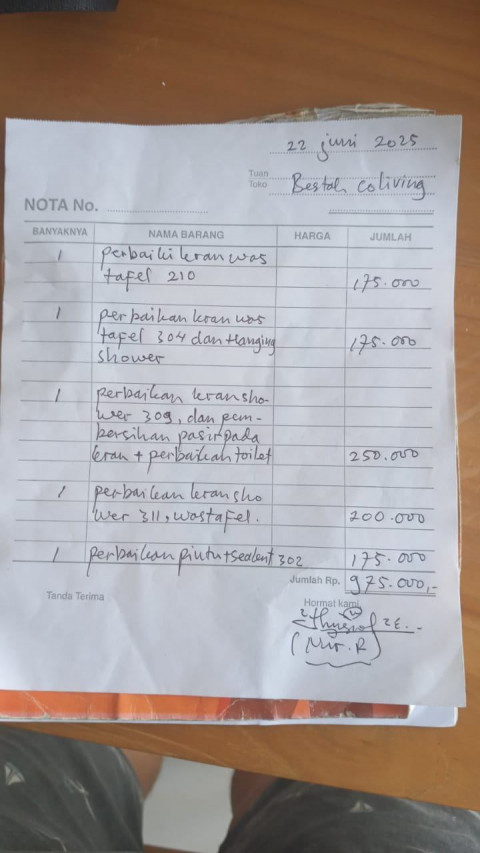 22 juni 2025
Tuan
Toko Bestah coliving
NOTA No.
BANYAKNYA NAMA BARANG HARGA JUMLAH
1 perbaiki kran was
tafel 210 175.000
1 perbaikan kran was
tafel 304 dan Hanging 175.000
shower
1 perbaikan kran sho-
wer 309, dan pem-
bersihan pasir pada
kran + perbaikan toilet 250.000
1 perbaikan kran sho
wer 311, wastafel. 200.000
1 perbaikan pintu + sealent 302 175.000
Jumlah Rp. 975.000,-
Tanda Terima Hormat kami,
(Mr. R)